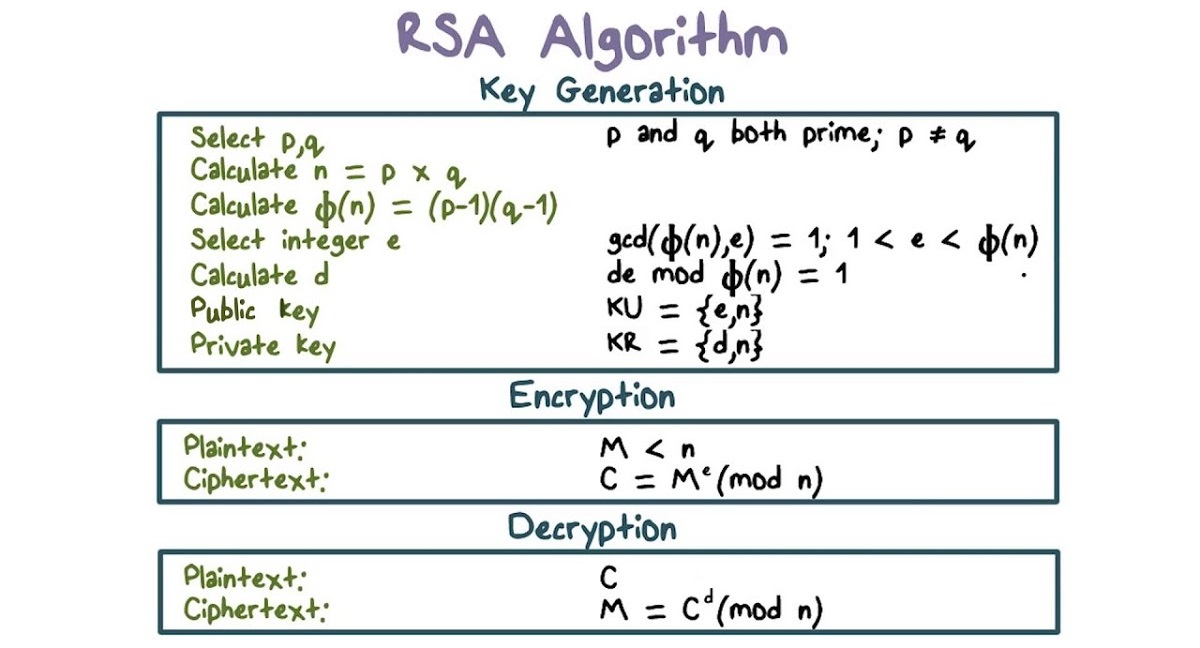 RSA Algorithm
Key Generation
Select p,q p and q both prime; p ≠ q
Calculate n = p x q
Calculate ϕ(n) = (p-1)(q-1)
Select integer e gcd(ϕ(n),e) = 1; 1 < e < ϕ(n)
Calculate d de mod ϕ(n) = 1
Public key KU = {e,n}
Private key KR = {d,n}
Encryption
Plaintext: M < n
Ciphertext: C = Mᵉ (mod n)
Decryption
Plaintext: C
Ciphertext: M = Cᵈ (mod n)